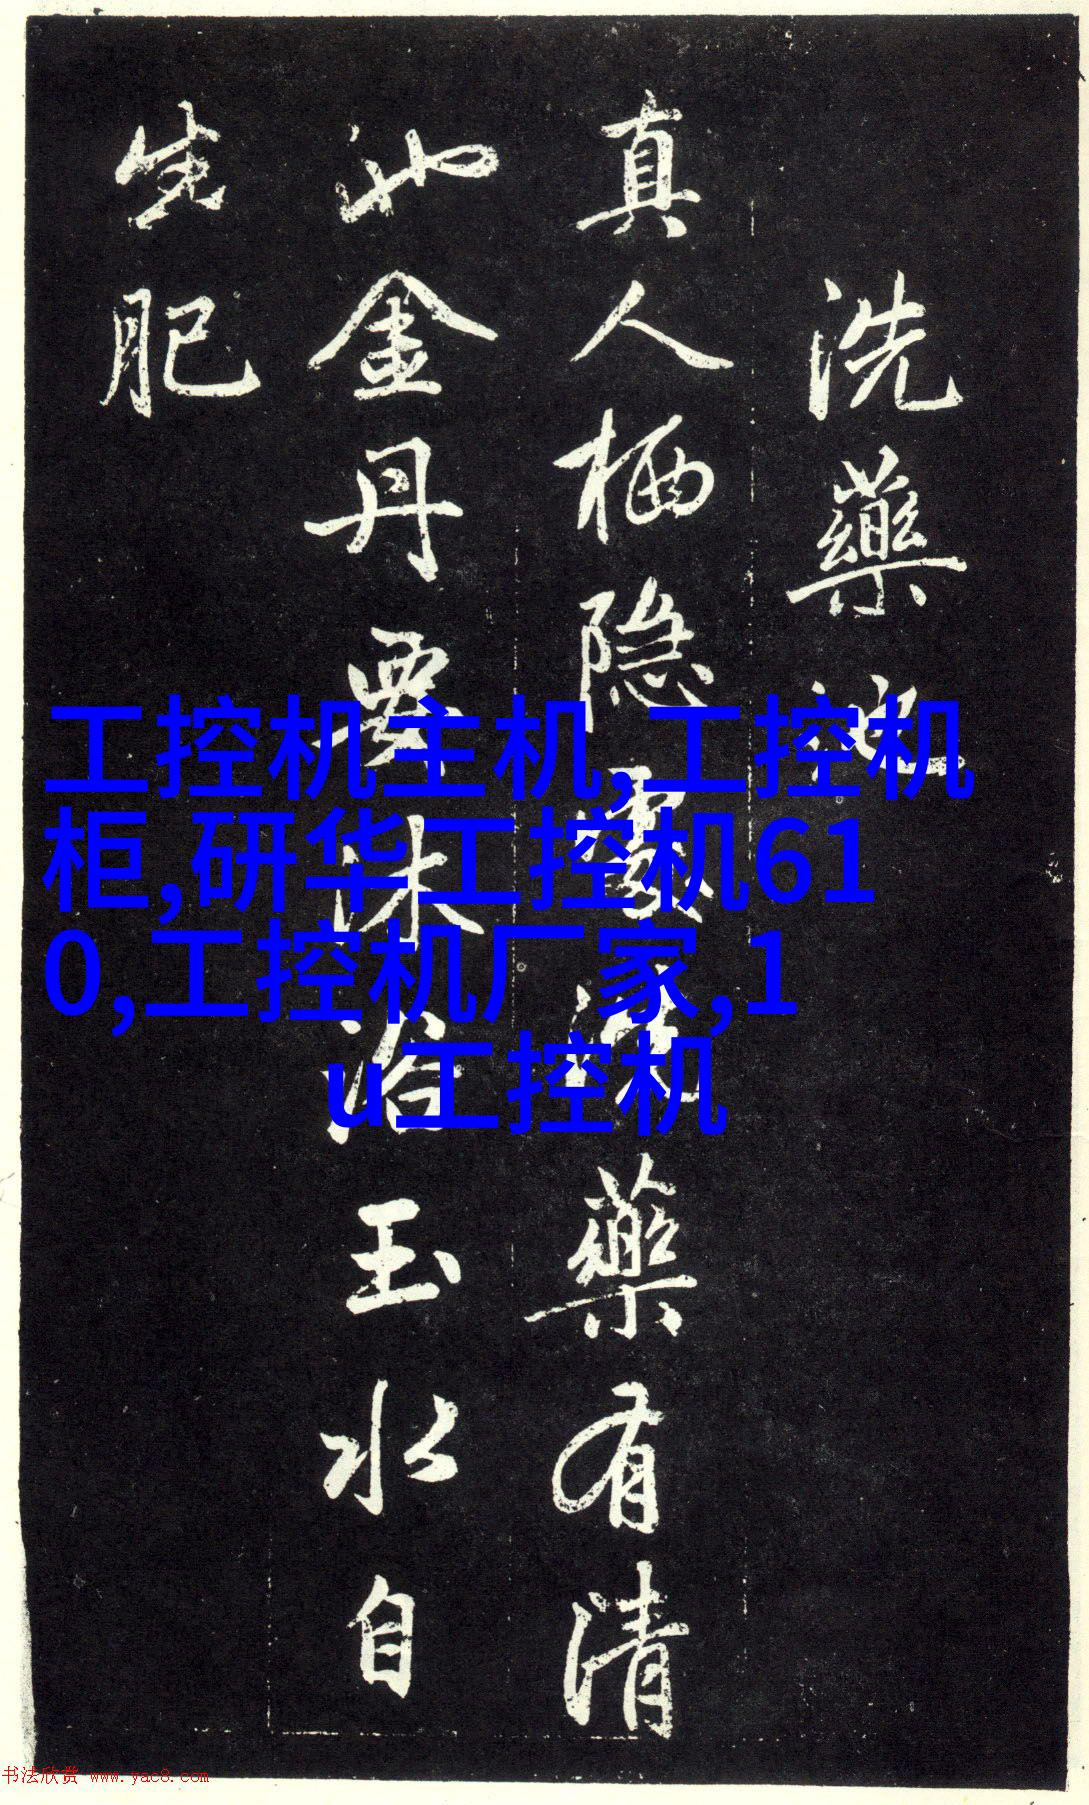 洗藥池
真人栖隐處洗藥有清
池金丹要沐浴玉水自
生肥
工控机主机,工控机
柜,研华工控机61
0,工控机厂家,1
u工控机
书法欣赏 www.yac8.com